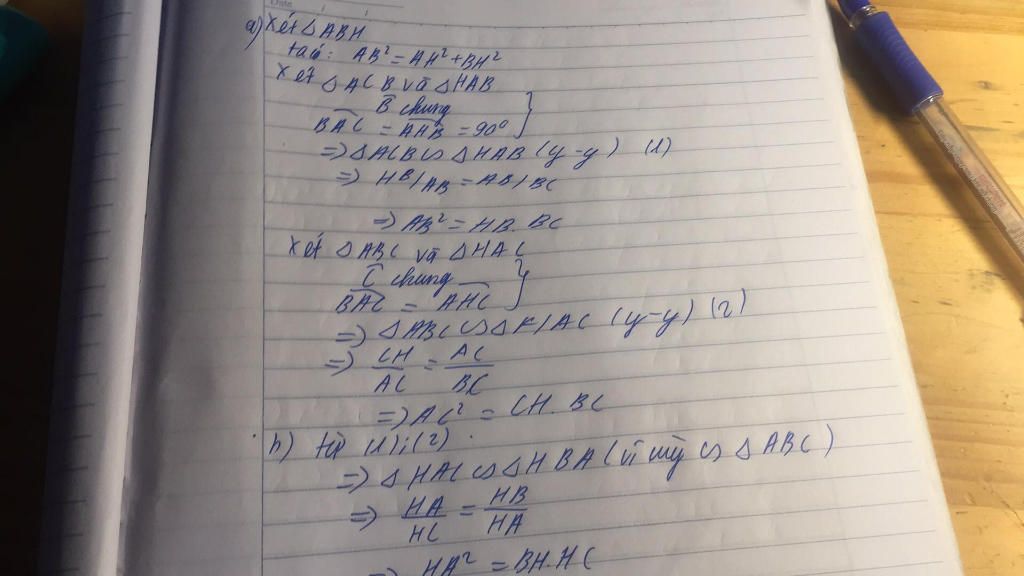 a) Xét △ABH
ta có: AB² = AH² + BH²
Xét △ACB và △HAB
B̂ chung
BAC = AHB = 90°
=> △ACB ∽ △HAB (g-g) (1)
=> HB/AB = AB/BC
=> AB² = HB.BC
Xét △ABC và △HAC
Ĉ chung
BAC = AHC
=> △ABC ∽ △HAC (g-g) (2)
=> CH/AC = AC/BC
=> AC² = CH.BC
b) từ (1);(2)
=> △HAC ∽ △HBA (vì cùng ∽ △ABC)
=> HA/HC = HB/HA
=> HA² = BH.HC